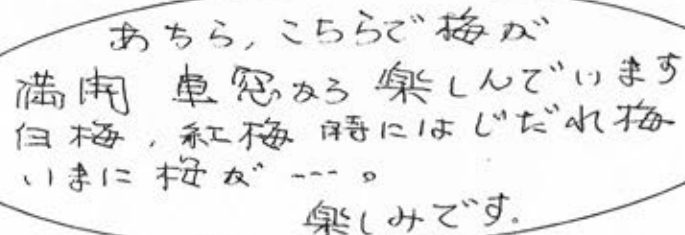 あちら、こちらで梅が
満開 車窓から 楽しんでいます
白梅、紅梅 時にはしだれ梅
いまに桜が---。
楽しみです。